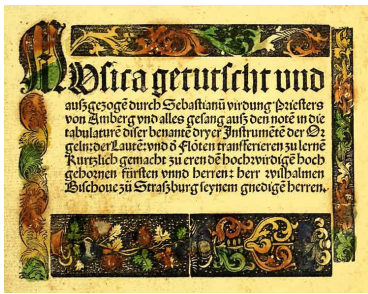 Musica getutscht und
außgezogẽ durch Sebastianũ virdung Priesters
von Amberg vnd alles gesang auß den notẽ in die
tabulaturẽ diser benantẽ dryer Instrumẽtẽ der Or
geln: der Lautẽ: vnd d̃ Flöten transferieren zu lernẽ
Kurtzlich gemacht zu eren dẽ hochwirdigẽ hoch
gebornen fürsten vnnd herren: herr wilhalmen
Bischoue zů Straßburg seynem gnedigẽ herren.